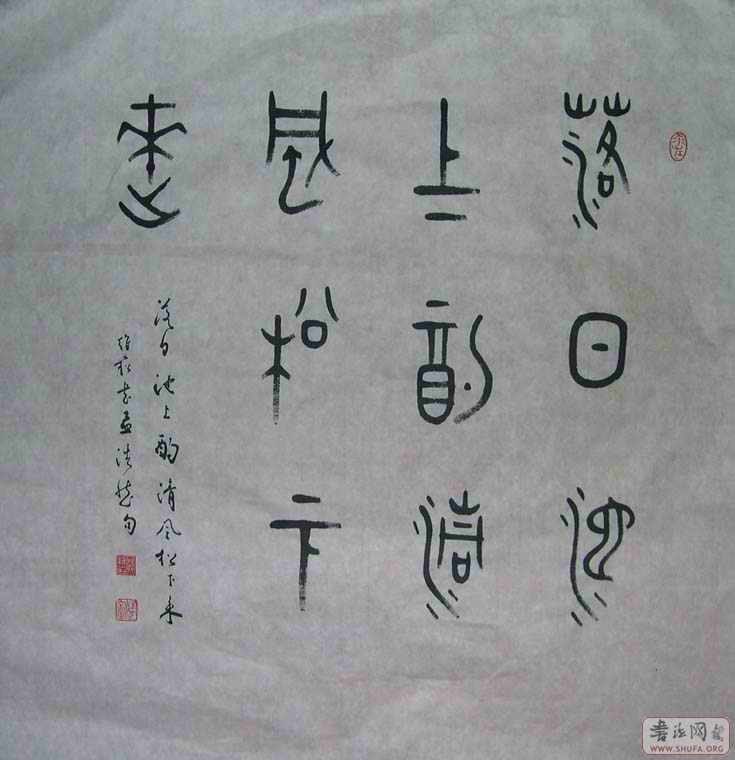 落日池
上酌清
風松下
來
落日池上酌清风松下来
书孟浩然句
書法网
WWW.SHUFA.ORG